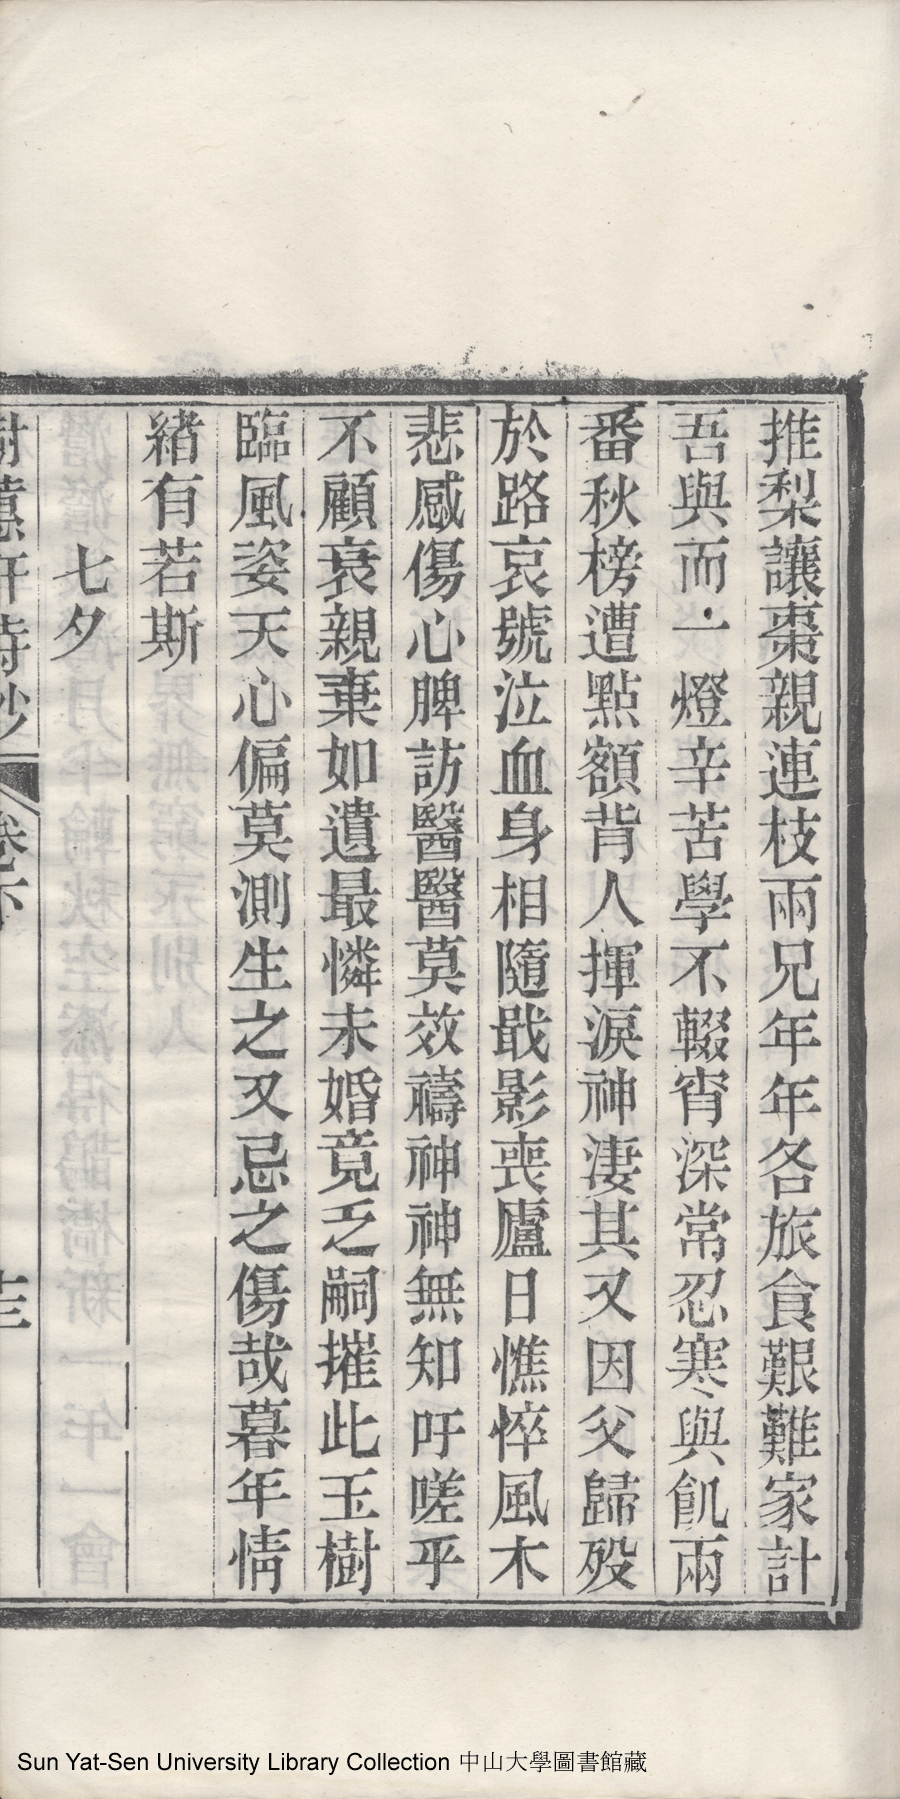 推梨讓棗親連枝兩兄年年各旅食艱難家計
吾與而一燈辛苦學不輟宵深常忍寒與飢兩
番秋榜遭點額背人揮淚神淒其又因父歸殁
於路哀號泣血身相隨戢影喪廬日憔悴風木
悲感傷心脾訪醫醫莫效禱神神無知吁嗟乎
不顧衰親棄如遺最憐未婚竟乏嗣摧此玉樹
臨風姿天心偏莫測生之又忌之傷哉暮年情
緒有若斯
七夕
樹蕙軒詩鈔
卷下
Sun Yat-Sen University Library Collection 中山大學圖書館藏